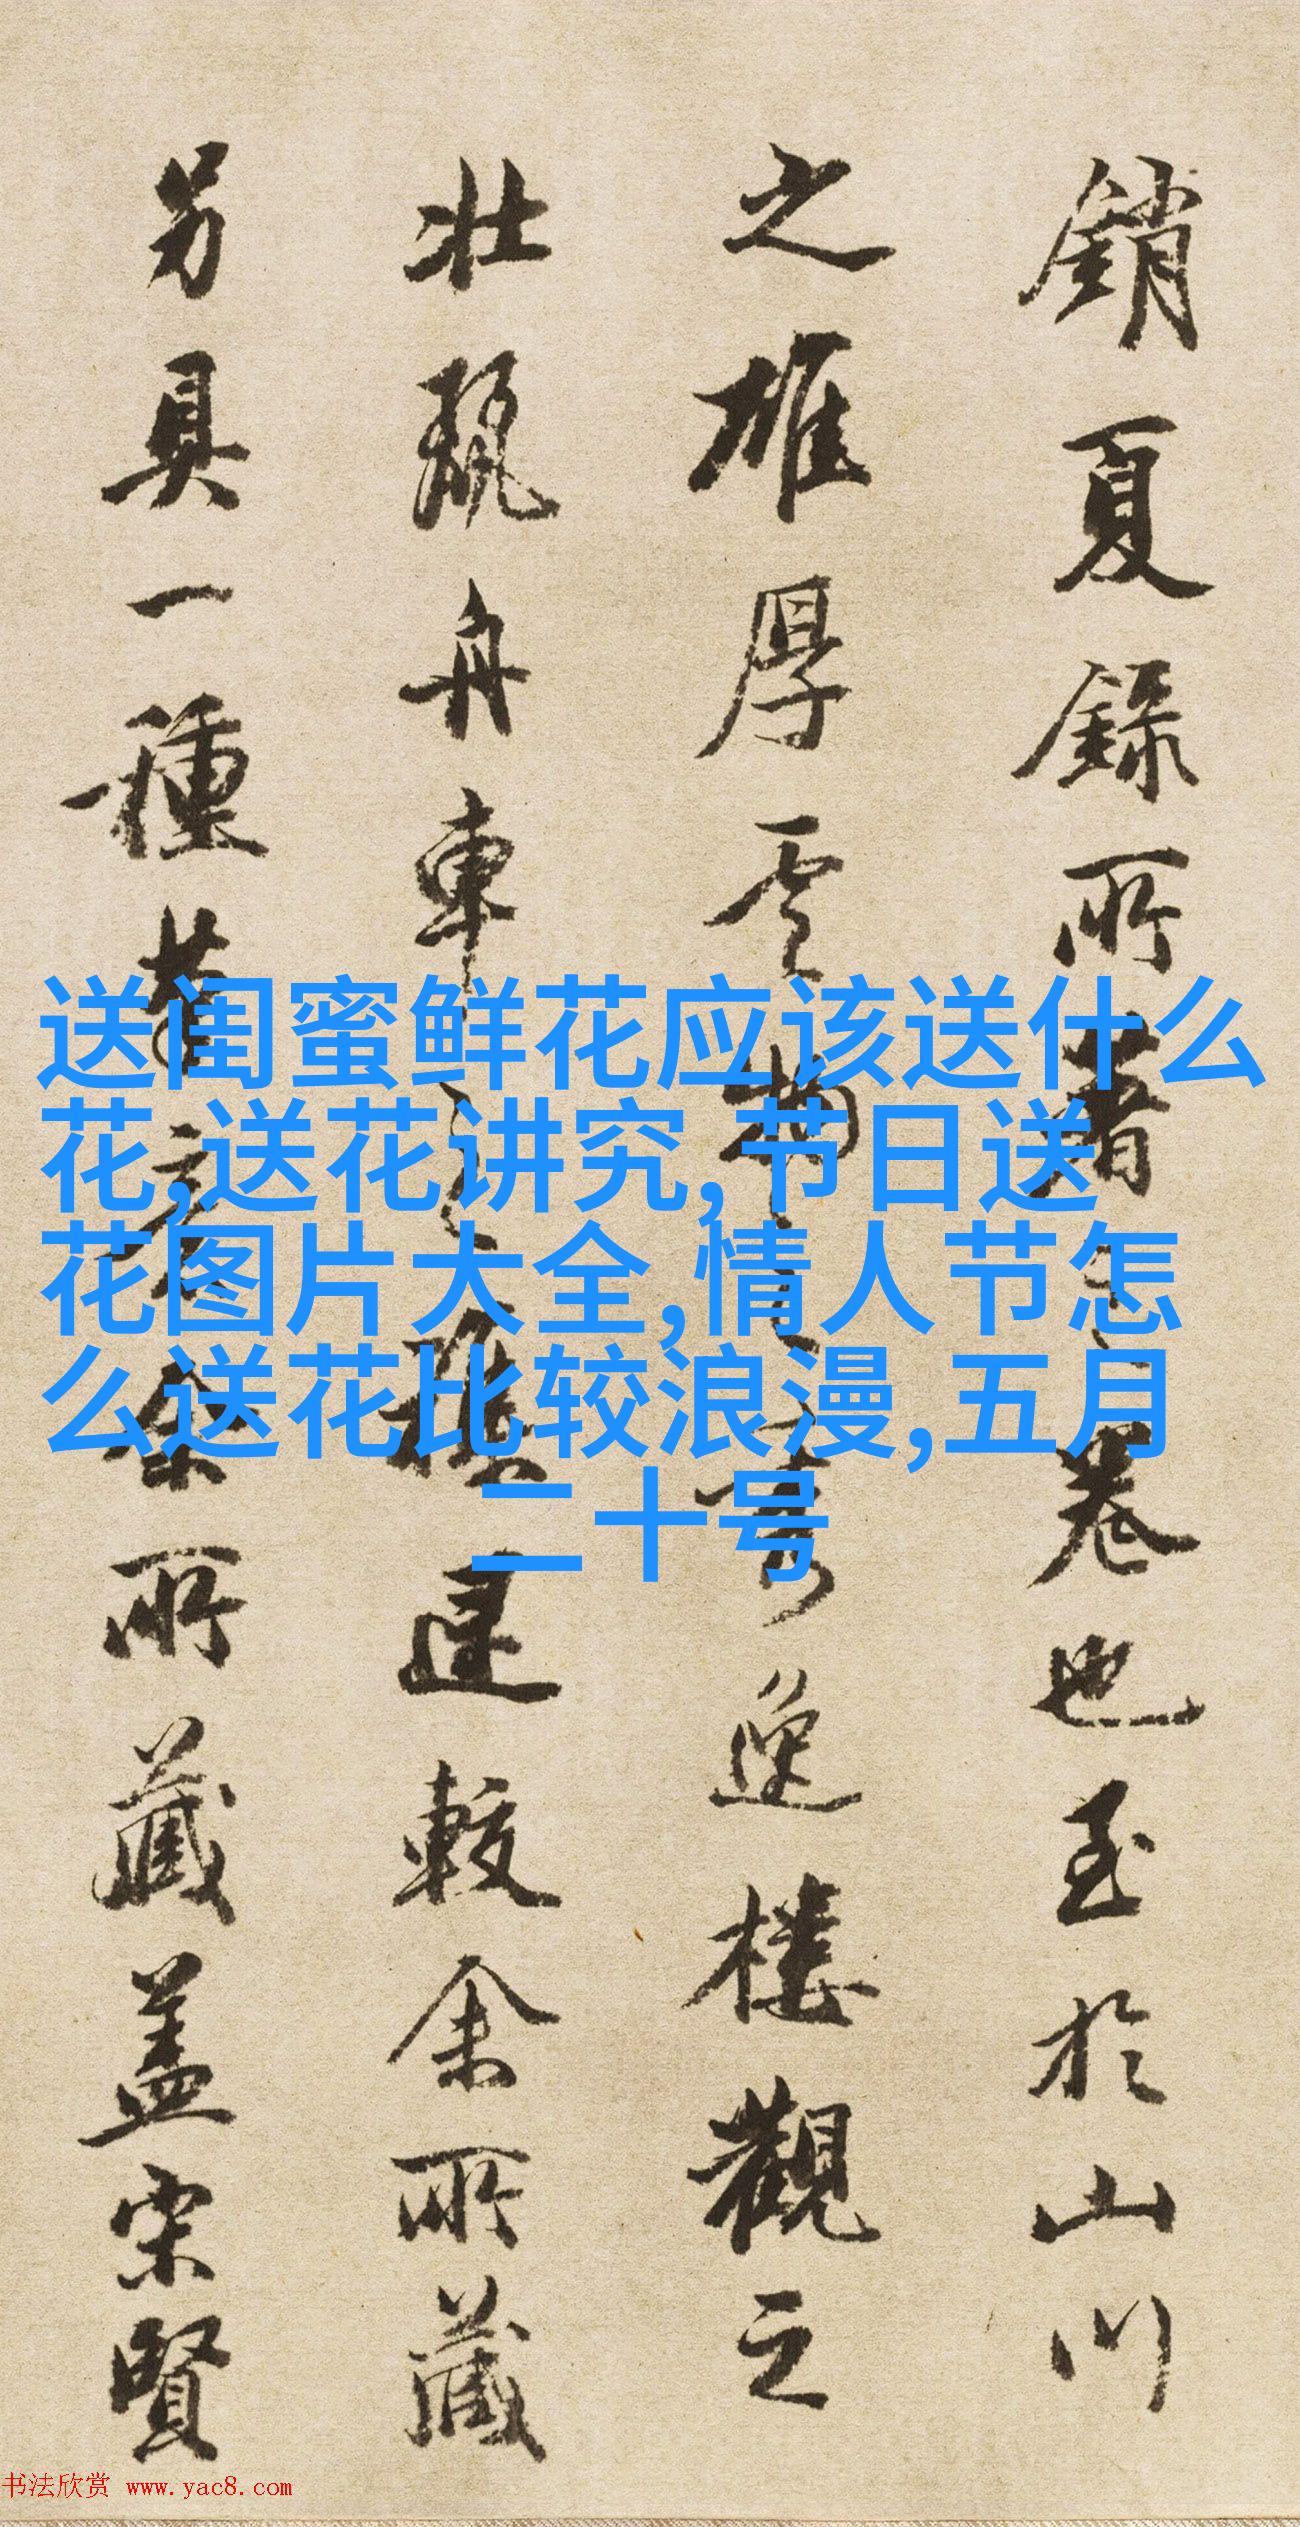 銷夏錄所著之卷也至於山川
之雄厚雲物之秀逸樓觀之
壯舟車之建較余所藏
另具一種余所藏蓋宋賢
送闺蜜鲜花应该送什么
花,送花讲究,节日送
花图片大全,情人节怎
么送花比较浪漫,五月
二十号
书法欣赏 www.yac8.com